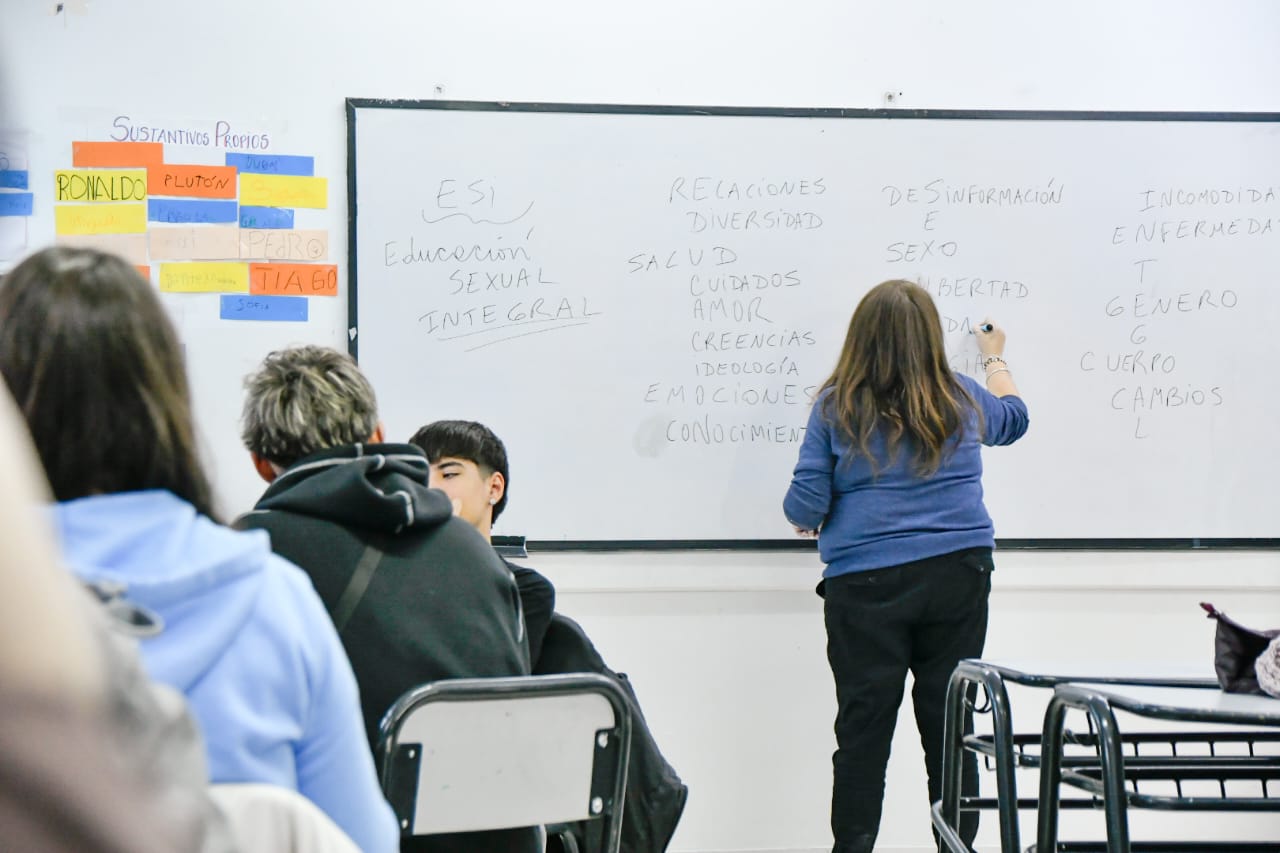 SUSTANTIVOS PROPIOS
RONALDO PLUTÓN
PEDRO
TIAGO
SOFIA
ESI
Educación
SEXUAL
INTEGRAL
RELACIONES
DIVERSIDAD
SALUD
CUIDADOS
AMOR
CREENCIAS
IDEOLOGÍA
EMOCIONES
CONOCIMIENT
DESINFORMACIÓN
E
SEXO
BERTAD
DA
INCOMODIDA
ENFERMEDA
T
GÉNERO
G
CUERPO
CAMBIOS
L